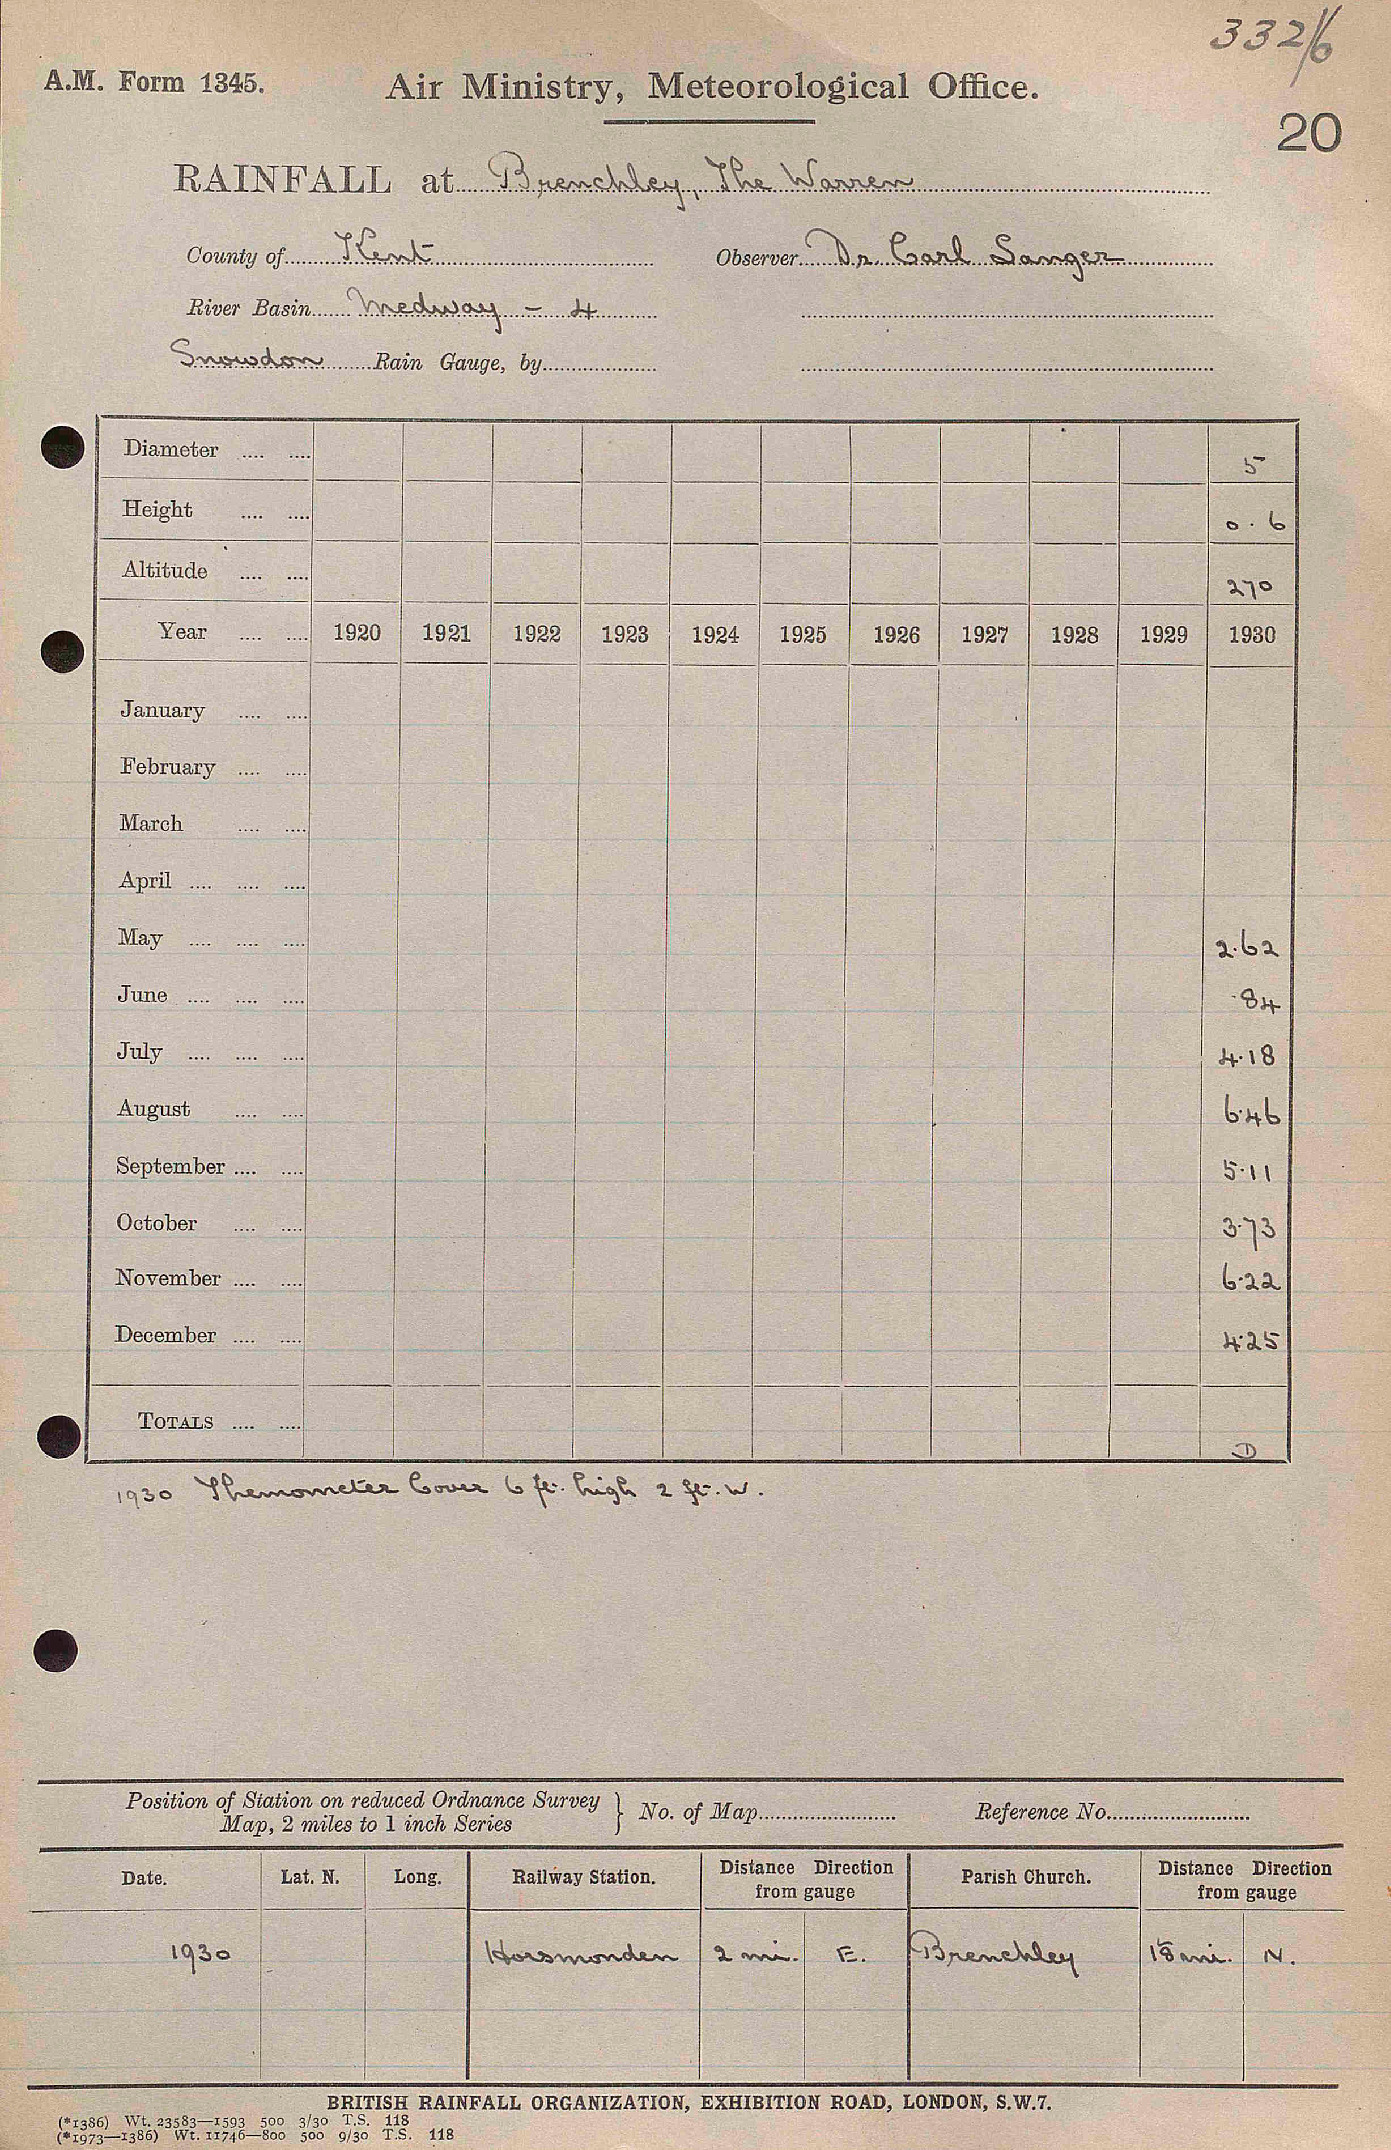 332/6
A.M. Form 1345.
Air Ministry, Meteorological Office.
20
RAINFALL at Brenchley, The Warren
County of Kent Observer Dr Carl Sanger
River Basin Medway - 4
Snowdon Rain Gauge, by
Diameter .... .... 5
Height .... .... 0.6
Altitude .... .... 270
Year .... .... 1920 1921 1922 1923 1924 1925 1926 1927 1928 1929 1930
January .... ....
February .... ....
March .... ....
April .... .... ....
May .... .... .... 2.62
June .... .... .... .84
July .... .... .... 4.18
August .... .... 6.46
September .... .... 5.11
October .... .... 3.73
November .... .... 6.22
December .... .... 4.25
TOTALS .... ....
1930 Themometer Cover 6 ft. high 2 ft. W.
Position of Station on reduced Ordnance Survey
Map, 2 miles to 1 inch Series } No. of Map Reference No.
Date. Lat. N. Long. Railway Station. Distance Direction from gauge Parish Church. Distance Direction from gauge
1930 Horsmonden 2 mi. E. Brenchley mi. N.
BRITISH RAINFALL ORGANIZATION, EXHIBITION ROAD, LONDON, S.W.7.
(*1386) Wt. 23583—1593 500 3/30 T.S. 118
(*1973—1386) Wt. 11746—800 500 9/30 T.S. 118